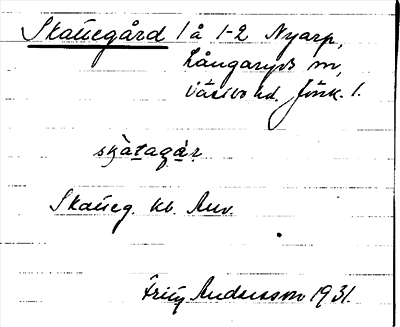 Skattegård 1 å 1-2 Nyarp,
Långaryds sn,
Västbo hd. Jönk. l.
skàtagàr
Skatteg. kb. Anv.
Fritz Andersson 1931.